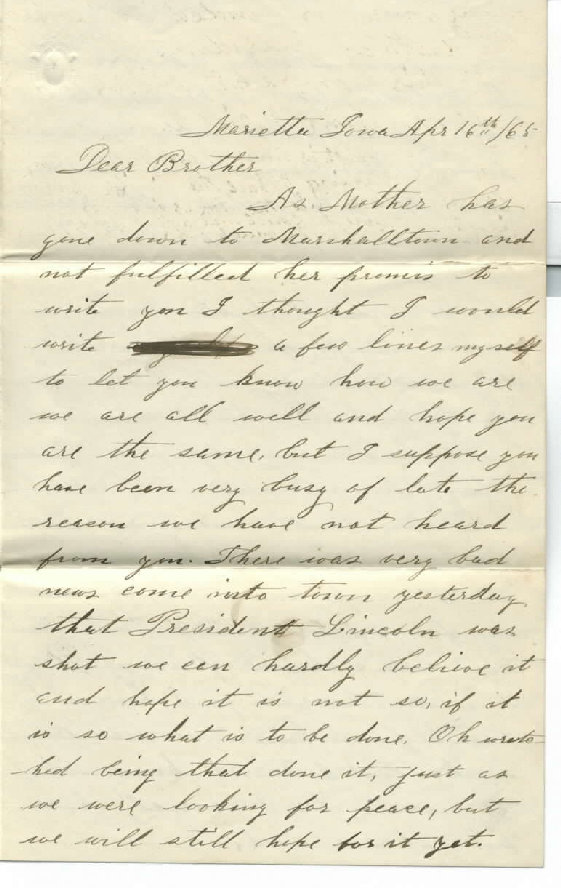 Marietta Iowa Apr 16th/65
Dear Brother
As Mother has
gone down to Marshalltown and
not fulfilled her promis to
write you I thought I would
write a few lines myself
to let you know how we are
we are all well and hope you
are the same, but I suppose you
have been very busy of late the
reason we have not heard
from you. There was very bad
news come into town yesterday,
that President Lincoln was
shot we can hardly believe it
and hope it is not so, if it
is so what is to be done. Oh wretc
hed being that done it, just as
we were looking for peace, but
we will still hope for it yet.